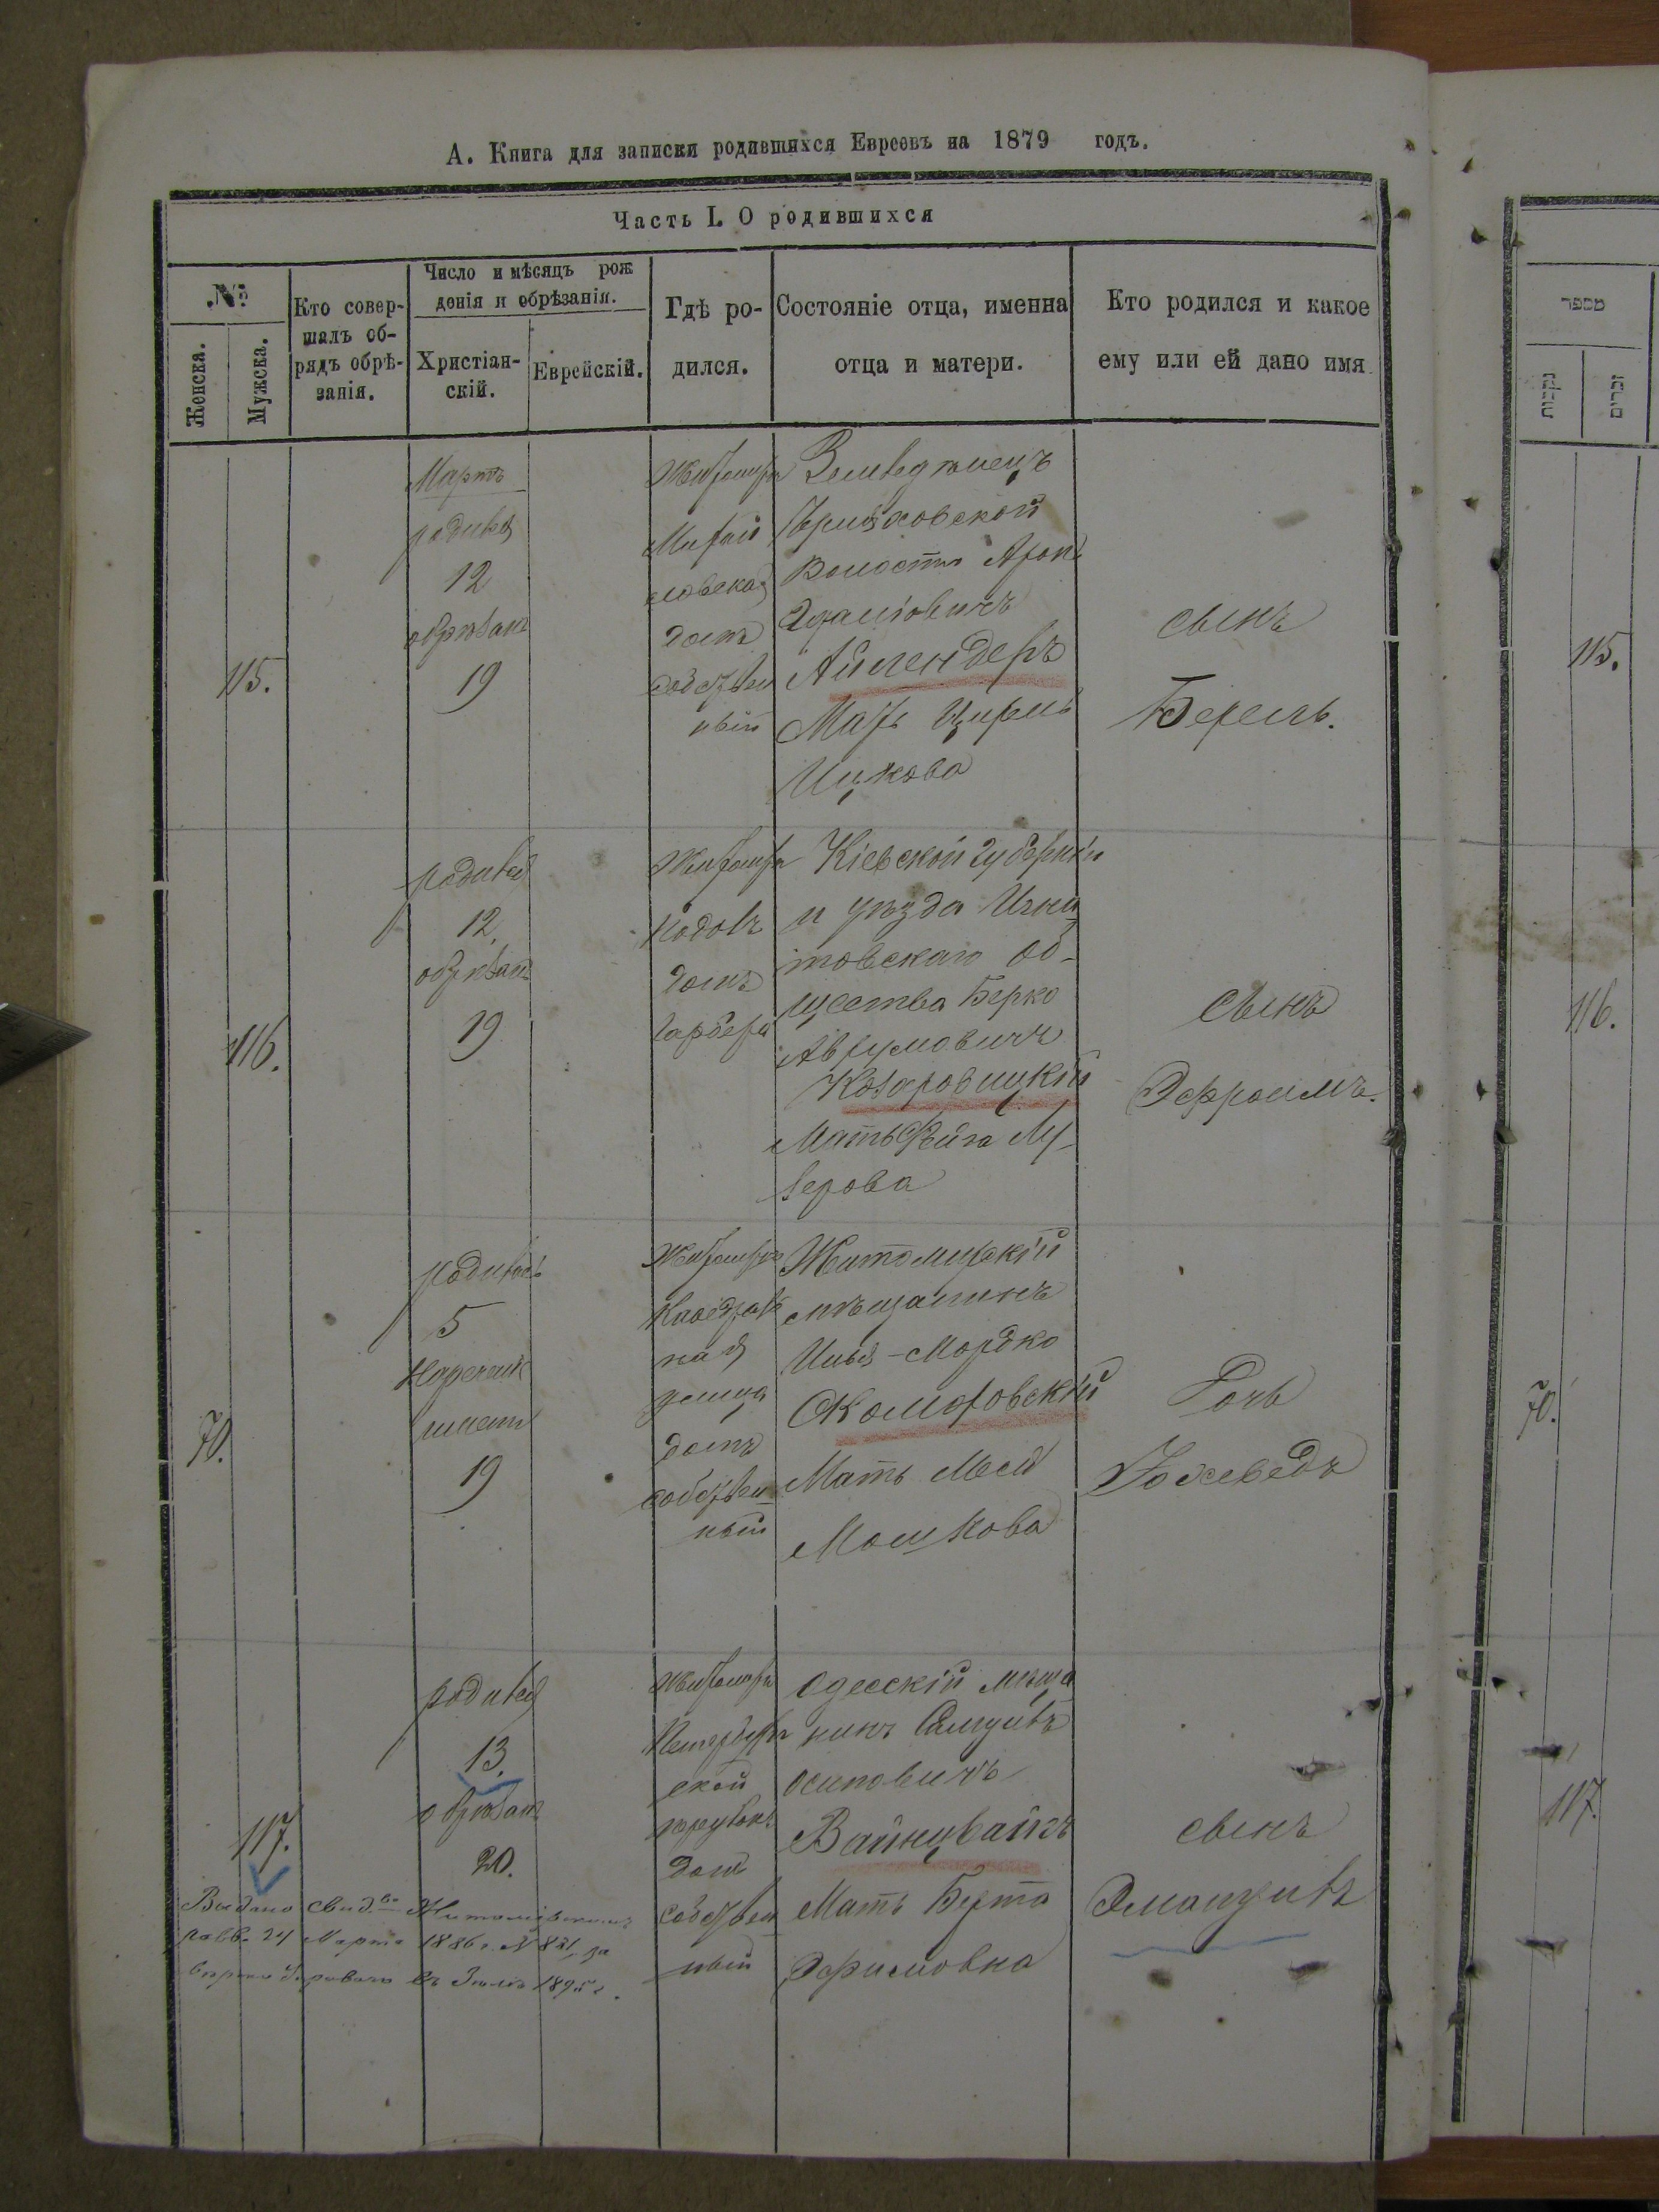 А. Книга для записки родившихся Евреевъ на 1879 годъ.
Часть I. О родившихся
№
Женска.
Мужска.
Кто совер-
шалъ об-
рядъ обрѣ-
занія.
Число и мѣсяцъ рож
денія и обрѣзанія.
Христіан-
скій.
Еврейскій.
Гдѣ ро-
дился.
Состояніе отца, именна
отца и матери.
Кто родился и какое
ему или ей дано имя
115.
Мартъ
родился
12
обрѣзанъ
19
Житомиръ
домъ
собствен
ный
Волости Аронъ
Айлендеръ
Мать
Ицкова
сынъ
Берель.
116.
родился
12.
обрѣзанъ
19
Житомиръ
домъ
Гарбера
Кіевской губерніи
и уѣзда Игна
товскаго об-
щества Берко
Аврумовичъ
Козаровицкій
Мать Фейга Лу
зерова
сынъ
Эфроимъ.
70.
родилась
5
19
Житомиръ
Каѳедраль
ная
улица
домъ
собствен
ный
Житомирскій
мѣщанинъ
Скоморовскій
Мать
Мошкова
Дочь
Іохеведъ
117.
родился
13.
обрѣзанъ
20.
Житомиръ
ской
домъ
собствен
ный
Одесскій мѣща
нинъ Самуилъ
Осиповичъ
Вайнцвайгъ
Мать Берта
Эфимовна
сынъ
Эмануилъ
Выдано Свид.во Житомірскимъ
равв. 24 Марта 1886 г. № 821, за
מספר
נקבות
זכרים
115.
116.
70.
117.